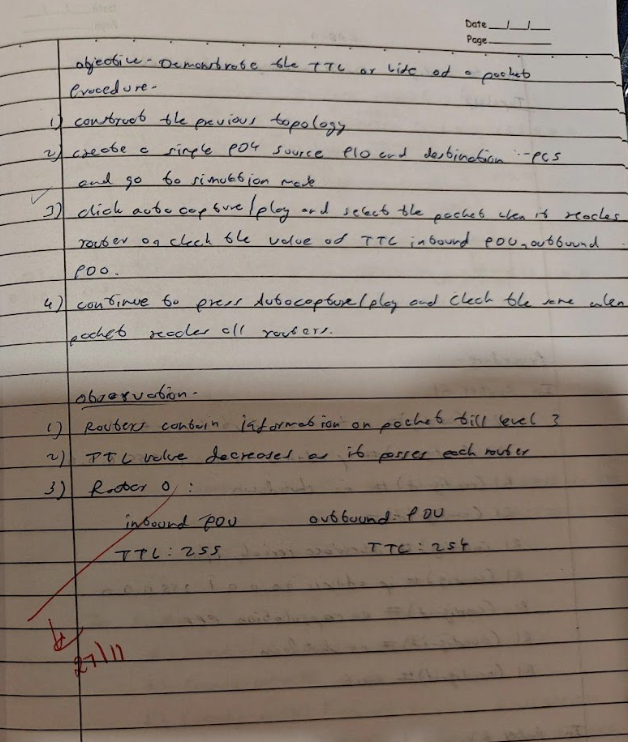 Date __/__/__
Page
objective - Demonstrate the TTL or life of a packet
Procedure -
1) construct the previous topology
2) create a simple PDU source P10 and destination - PCS
and go to simulation mode
3) click auto capture/play and select the packet when it reaches
router on check the value of TTL inbound PDU, outbound
PDU.
4) continue to press Autocapture/play and check the same when
packet reaches all routers.
observation -
1) Routers contain information on packet till level 3
2) TTL value decreases as it passes each router
3) Router 0 :
inbound PDU outbound: PDU
TTL : 255 TTL : 254
27/11